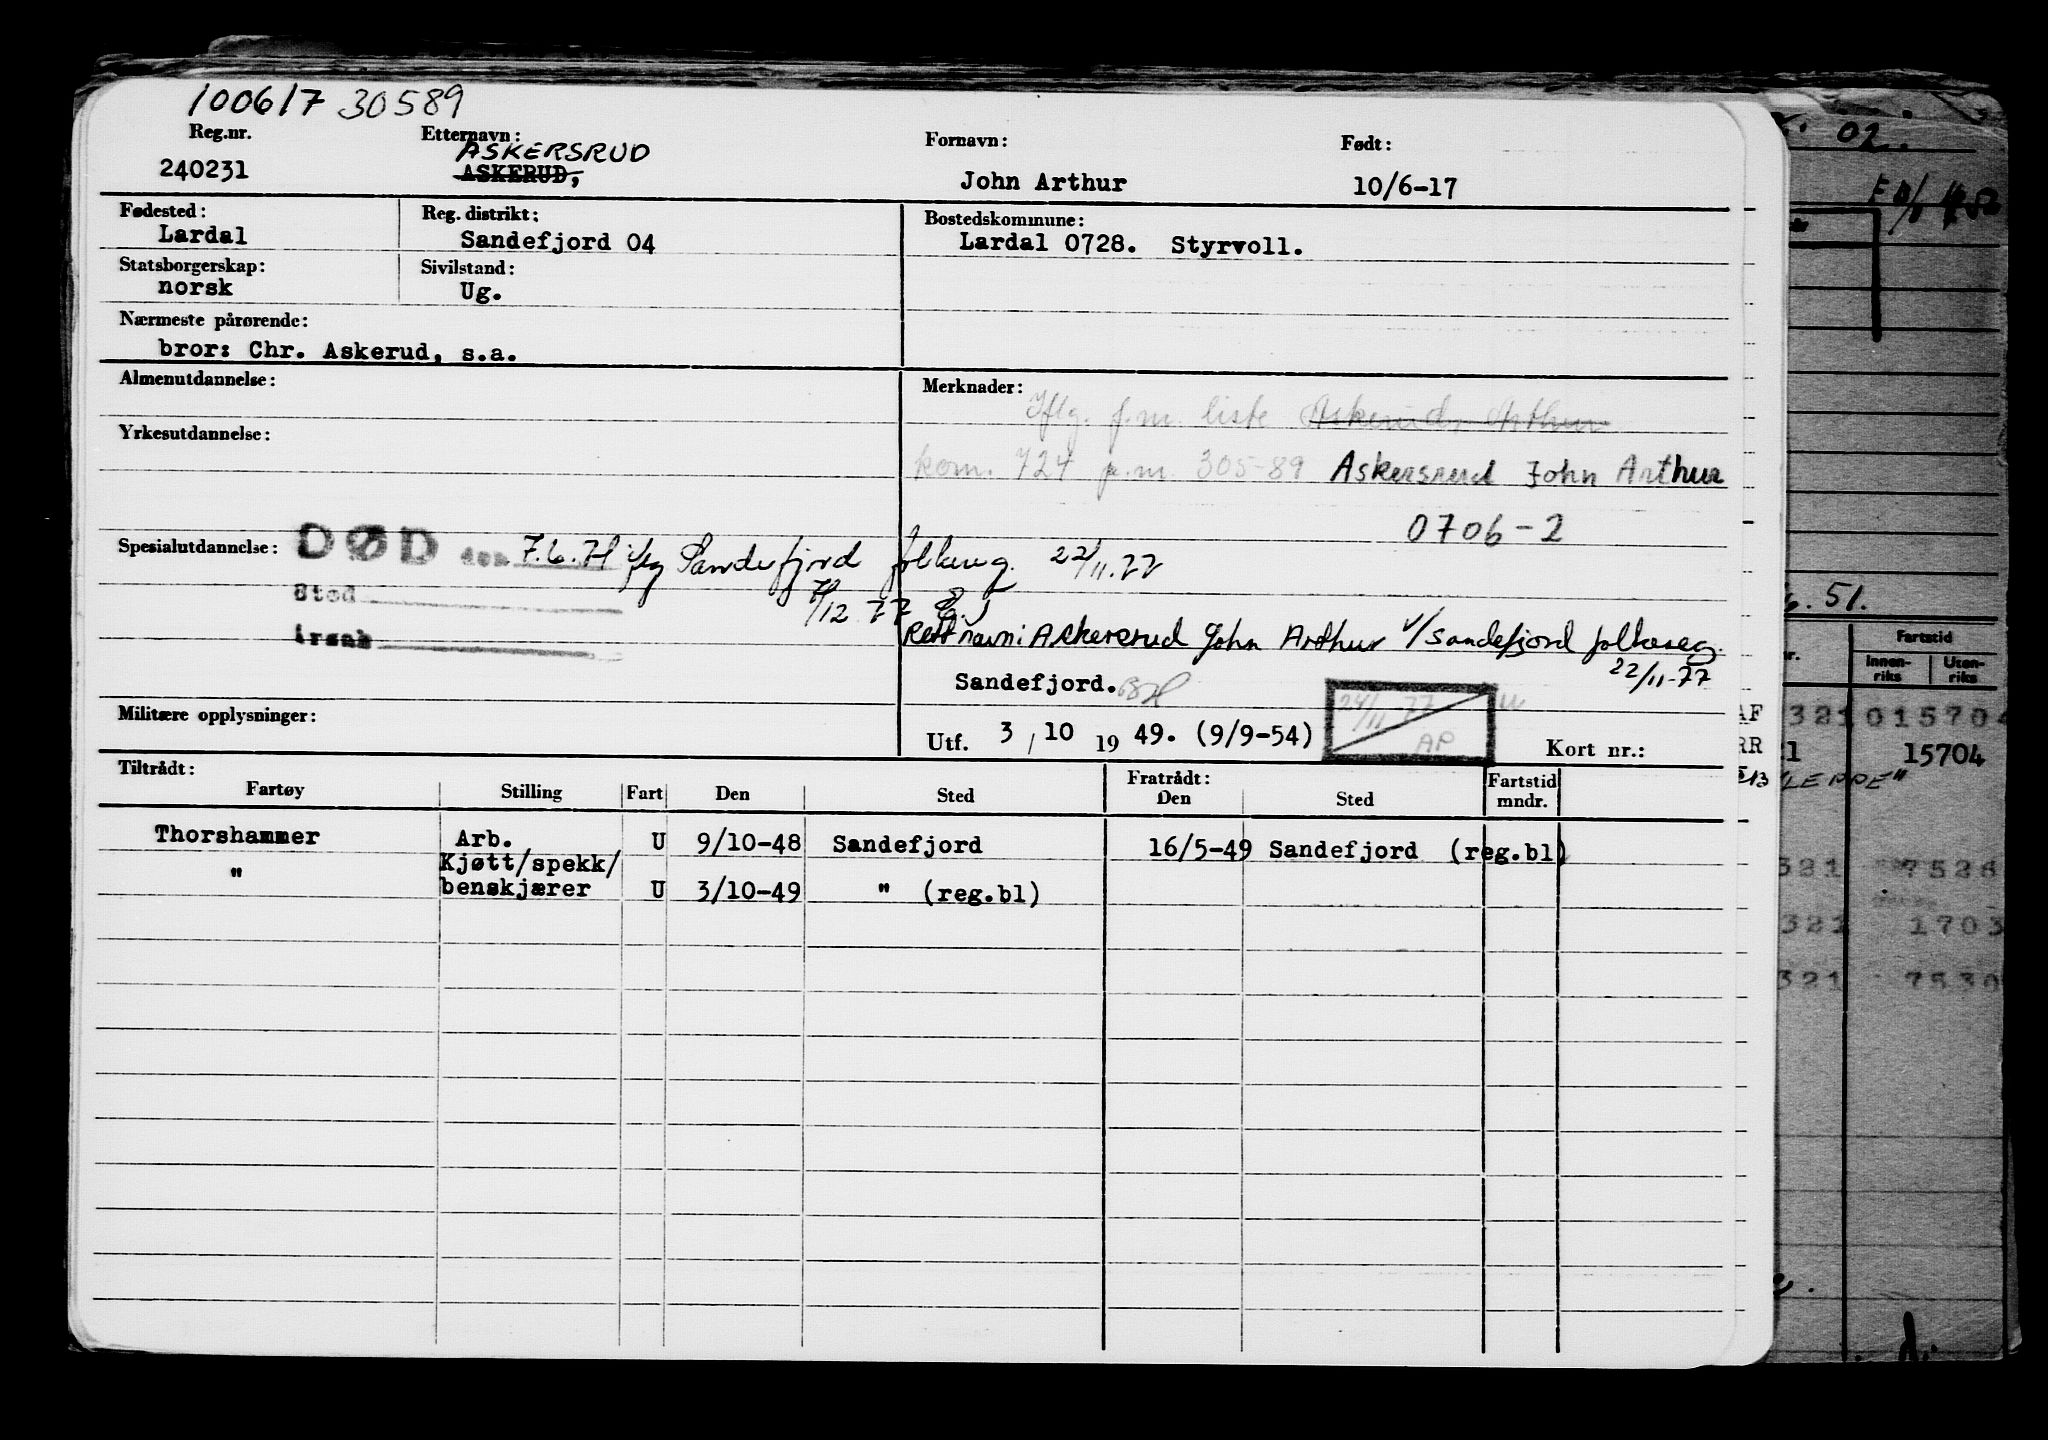 100617 30589
Reg.nr. Etternavn: Fornavn: Født:
ASKERSRUD
240231 ASKERUD, John Arthur 10/6-17
Fødested: Reg. distrikt: Bostedskommune:
Lardal Sandefjord 04 Lardal 0728. Styrvoll.
Statsborgerskap: Sivilstand:
norsk Ug.
Nærmeste pårørende:
bror: Chr. Askerud, s.a.
Almenutdannelse: Merknader:
Iflg. f.m. liste Askerud, Arthur
Yrkesutdannelse:
kom. 724 p.m. 305-89 Askersrud John Arthur
0706-2
Spesialutdannelse: DØD den 7.6.71 iflg Sandefjord folkereg. 22/11.77
Sted 7/12 77
Årsak Rett navn: Askersrud John Arthur v/Sandefjord folkereg.
22/11-77
Sandefjord.
24/11-77
AP
Militære opplysninger: Utf. 3 / 10 19 49. (9/9-54) Kort nr.:
Tiltrådt: Fratrådt:
Fartøy Stilling Fart Den Sted Den Sted Fartstid mndr.
Thorshammer Arb. U 9/10-48 Sandefjord 16/5-49 Sandefjord (reg.bl)
Kjøtt/spekk/
" benskjærer U 3/10-49 " (reg.bl)
02.
51.
Fartstid
Innen-riks Uten-riks
AF 321 015704
RR 21 15704
321 7526
321 1703
321 7530